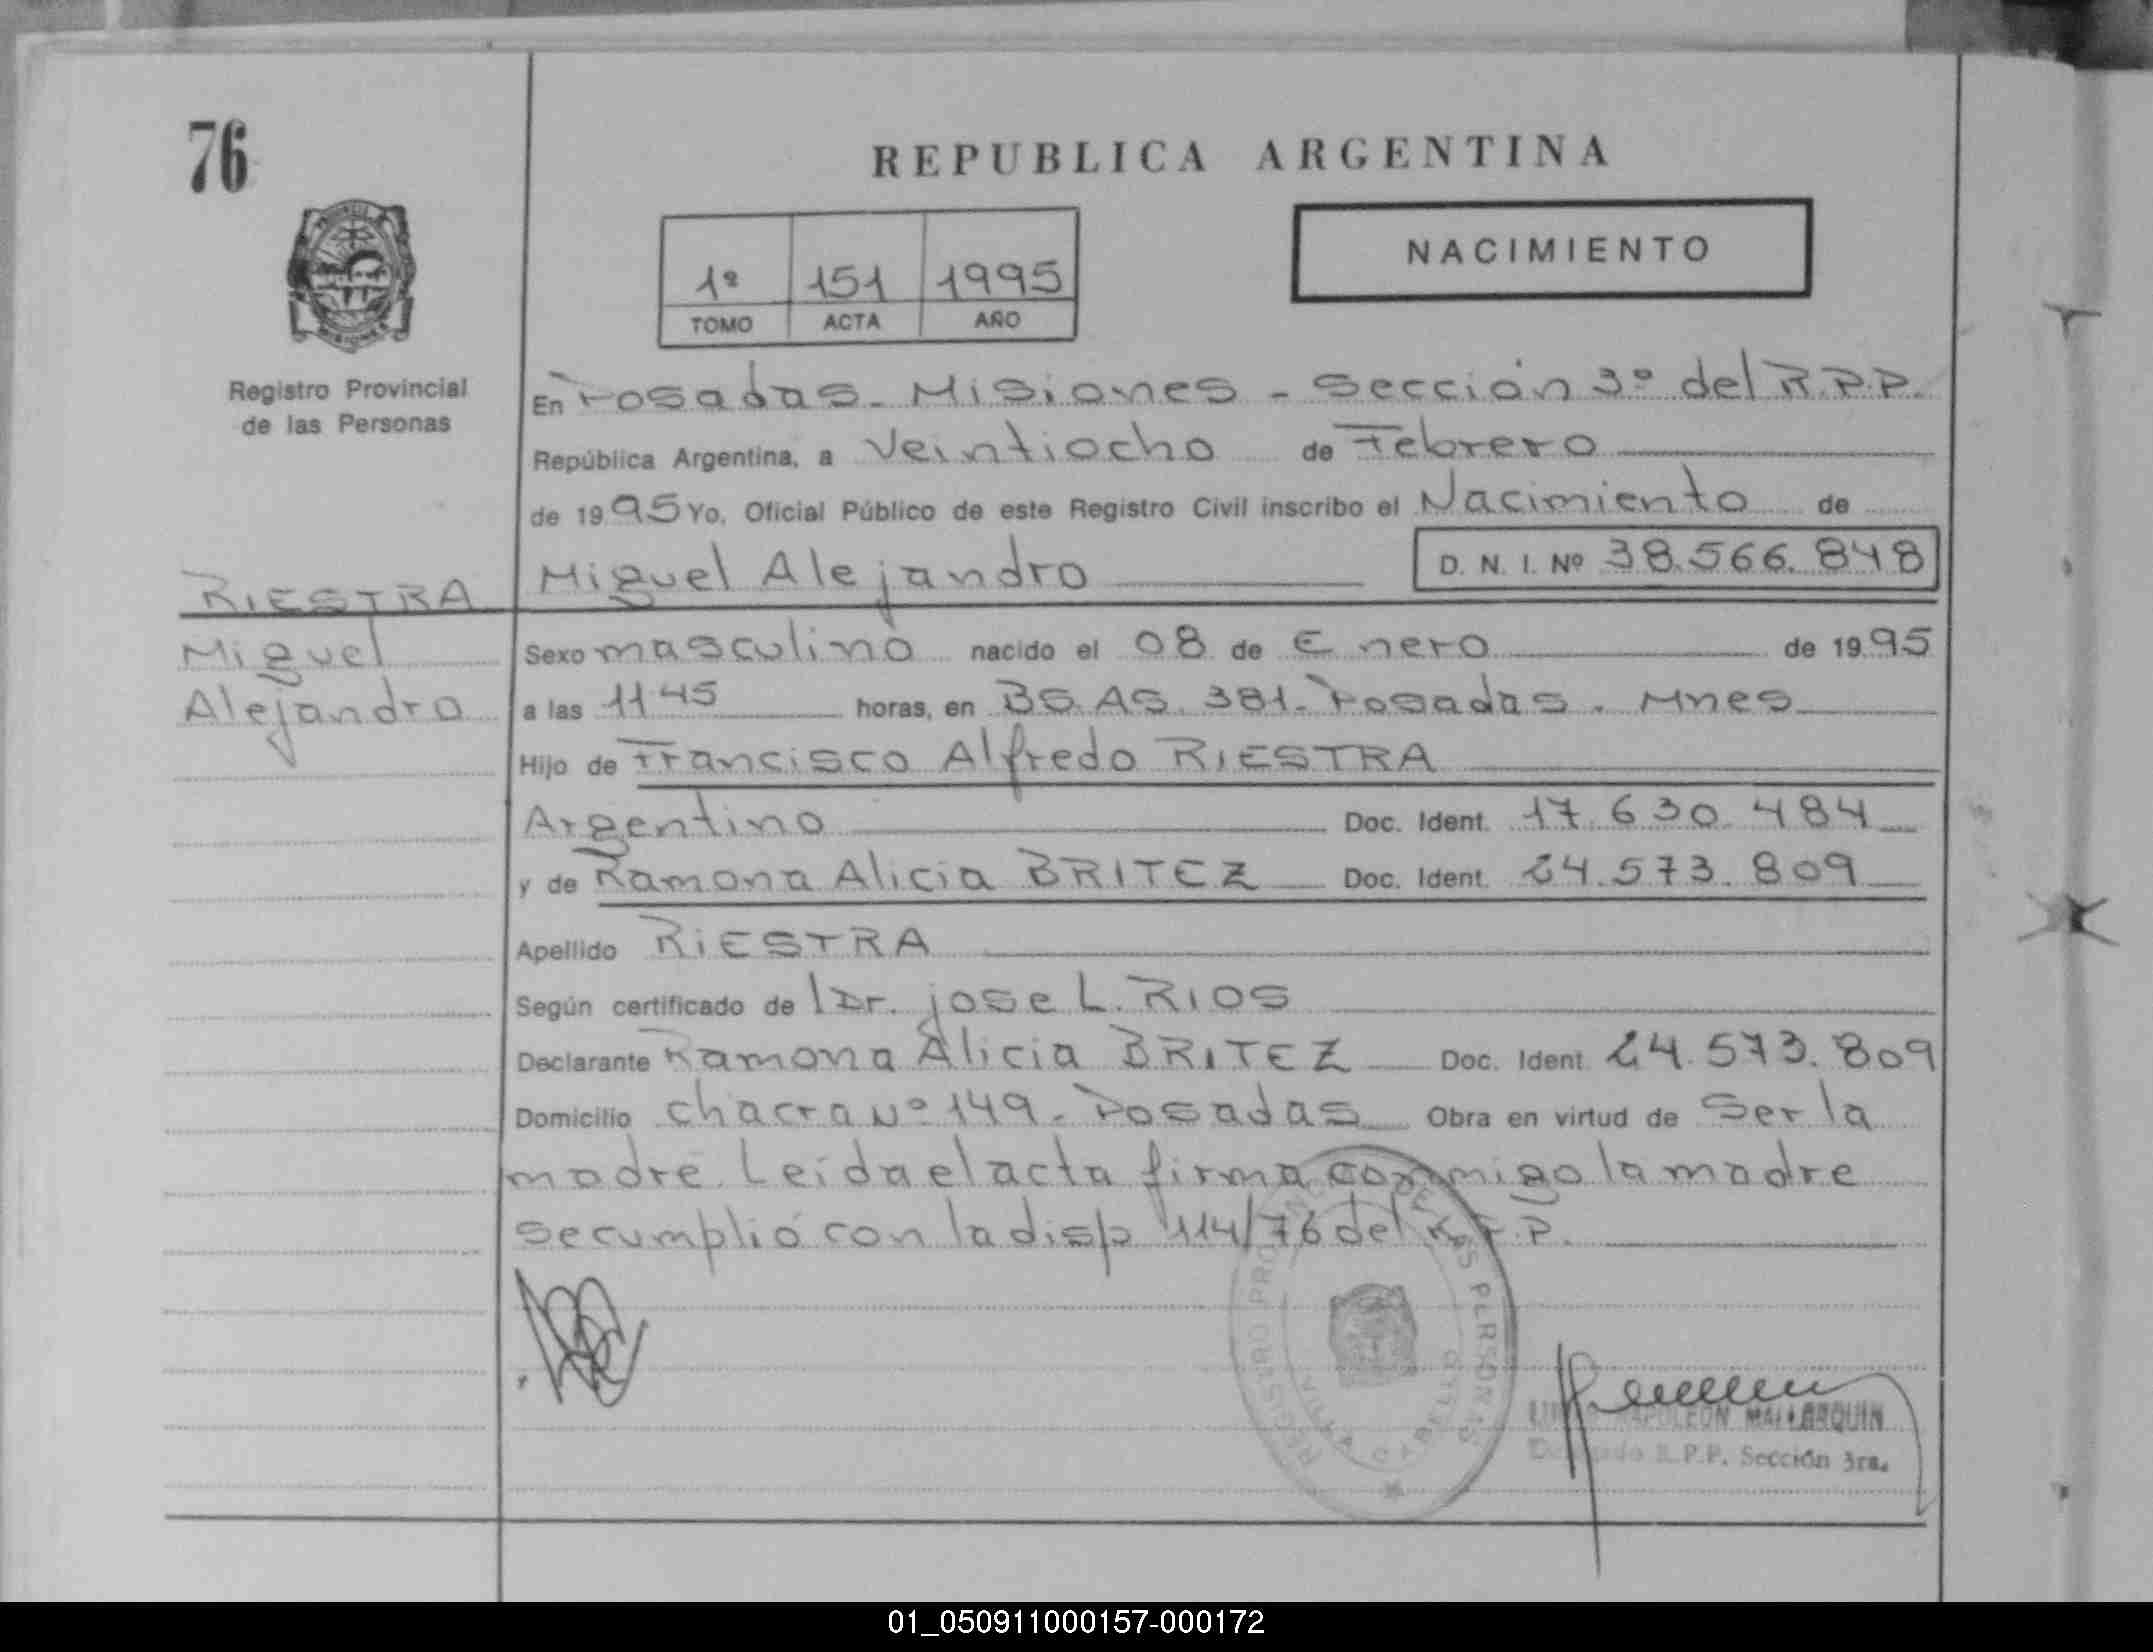 76
REPUBLICA ARGENTINA
NACIMIENTO
1º 151 1995
TOMO ACTA AÑO
Registro Provincial
de las Personas
En Posadas - Misiones - Sección 3º del R.P.P.
República Argentina, a Veintiocho de Febrero
de 1995 Yo, Oficial Público de este Registro Civil inscribo el Nacimiento de
Miguel Alejandro D. N. I. Nº 38.566.848
RIESTRA
Miguel
Alejandro
Sexo masculino nacido el 08 de Enero de 1995
a las 11 45 horas, en BS. AS. 381. Posadas. Mnes
Hijo de Francisco Alfredo RIESTRA
Argentino Doc. Ident. 17.630.484
y de Ramona Alicia BRITEZ Doc. Ident. 24.573.809
Apellido RIESTRA
Según certificado de Dr. jose L. RIOS
Declarante Ramona Alicia BRITEZ Doc. Ident. 24.573.809
Domicilio chacra Nº 149 - Posadas Obra en virtud de Ser la
madre. Leida el acta firma conmigo la madre
se cumplió con la disp 114/76 del R.P.P.
REGISTRO DE LAS PERSONAS
VILLA CABELLO
NAPOLEON MALLARQUIN
R.P.P. Sección 3ra.
01_050911000157-000172